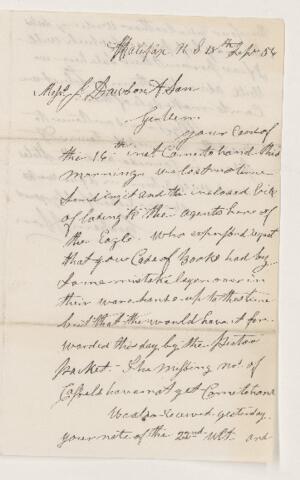 Halifax N S 18th Sepr 54
Messrs J. Dawson & Son
Gentlem.
your Case of
the 16th inst Came to hand this
morning we lost no time
sending it and the inclosed
of lading to the agents here of
the Eagle. Who expressed regret
that your Case of Books had by
some mistake layen over in
their ware house up to this time
but that the would have it for-
warded this day by the Pictou
Packet - The missing nos. of
have not yet Come to hand
We also received yesterday
your note of the 22nd Ult. and